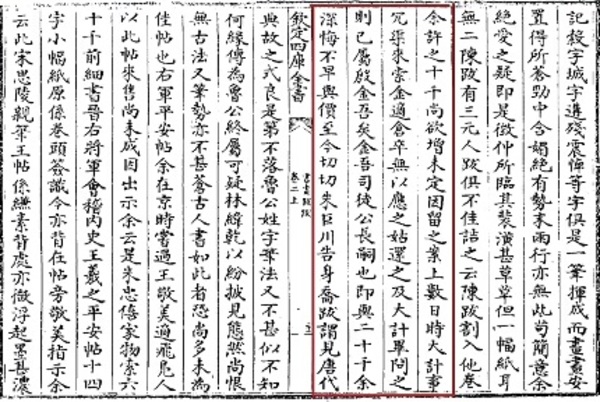 記殺字城字進殘震悼等字俱是一筆揮成而畫畫安
置得所蒼勁中含媚絕有勢末兩行亦無此苟簡意余
絕愛之疑即是徵仲所臨其裝潢甚草草但一幅紙耳
無二陳跋有三元人跋俱不佳詰之云陳跋割入他卷
余許之十千尚欲增未定因留之案上數日時大計事
冗渠來索金適倉卒無以應之姑還之及大計畢問之
則已屬殷金吾矣金吾司徒公長嗣也即與二十千余
深悔不早與價至今切切朱巨川告身喬跋謂見唐代
欽定四庫全書
書畫跋跋
卷二上
典故之式良是第不落魯公姓字筆法又不甚似不知
何緣傳為魯公終屬可疑林緯乾以紛披見態然尚恨
無古法又筆勢亦不甚蒼古人書如此者恐尚多未為
佳帖也右軍平安帖余在京時嘗過王敬美適飛鳧人
以此帖來售尚未成因出示余云是朱忠僖家物索六
十千前細書晉右將軍會稽內史王羲之平安帖十四
字小幅紙原係卷頭簽識今亦背在帖旁敬美指示余
云此宋思陵親筆王帖係縑素背處亦微浮起墨甚濃